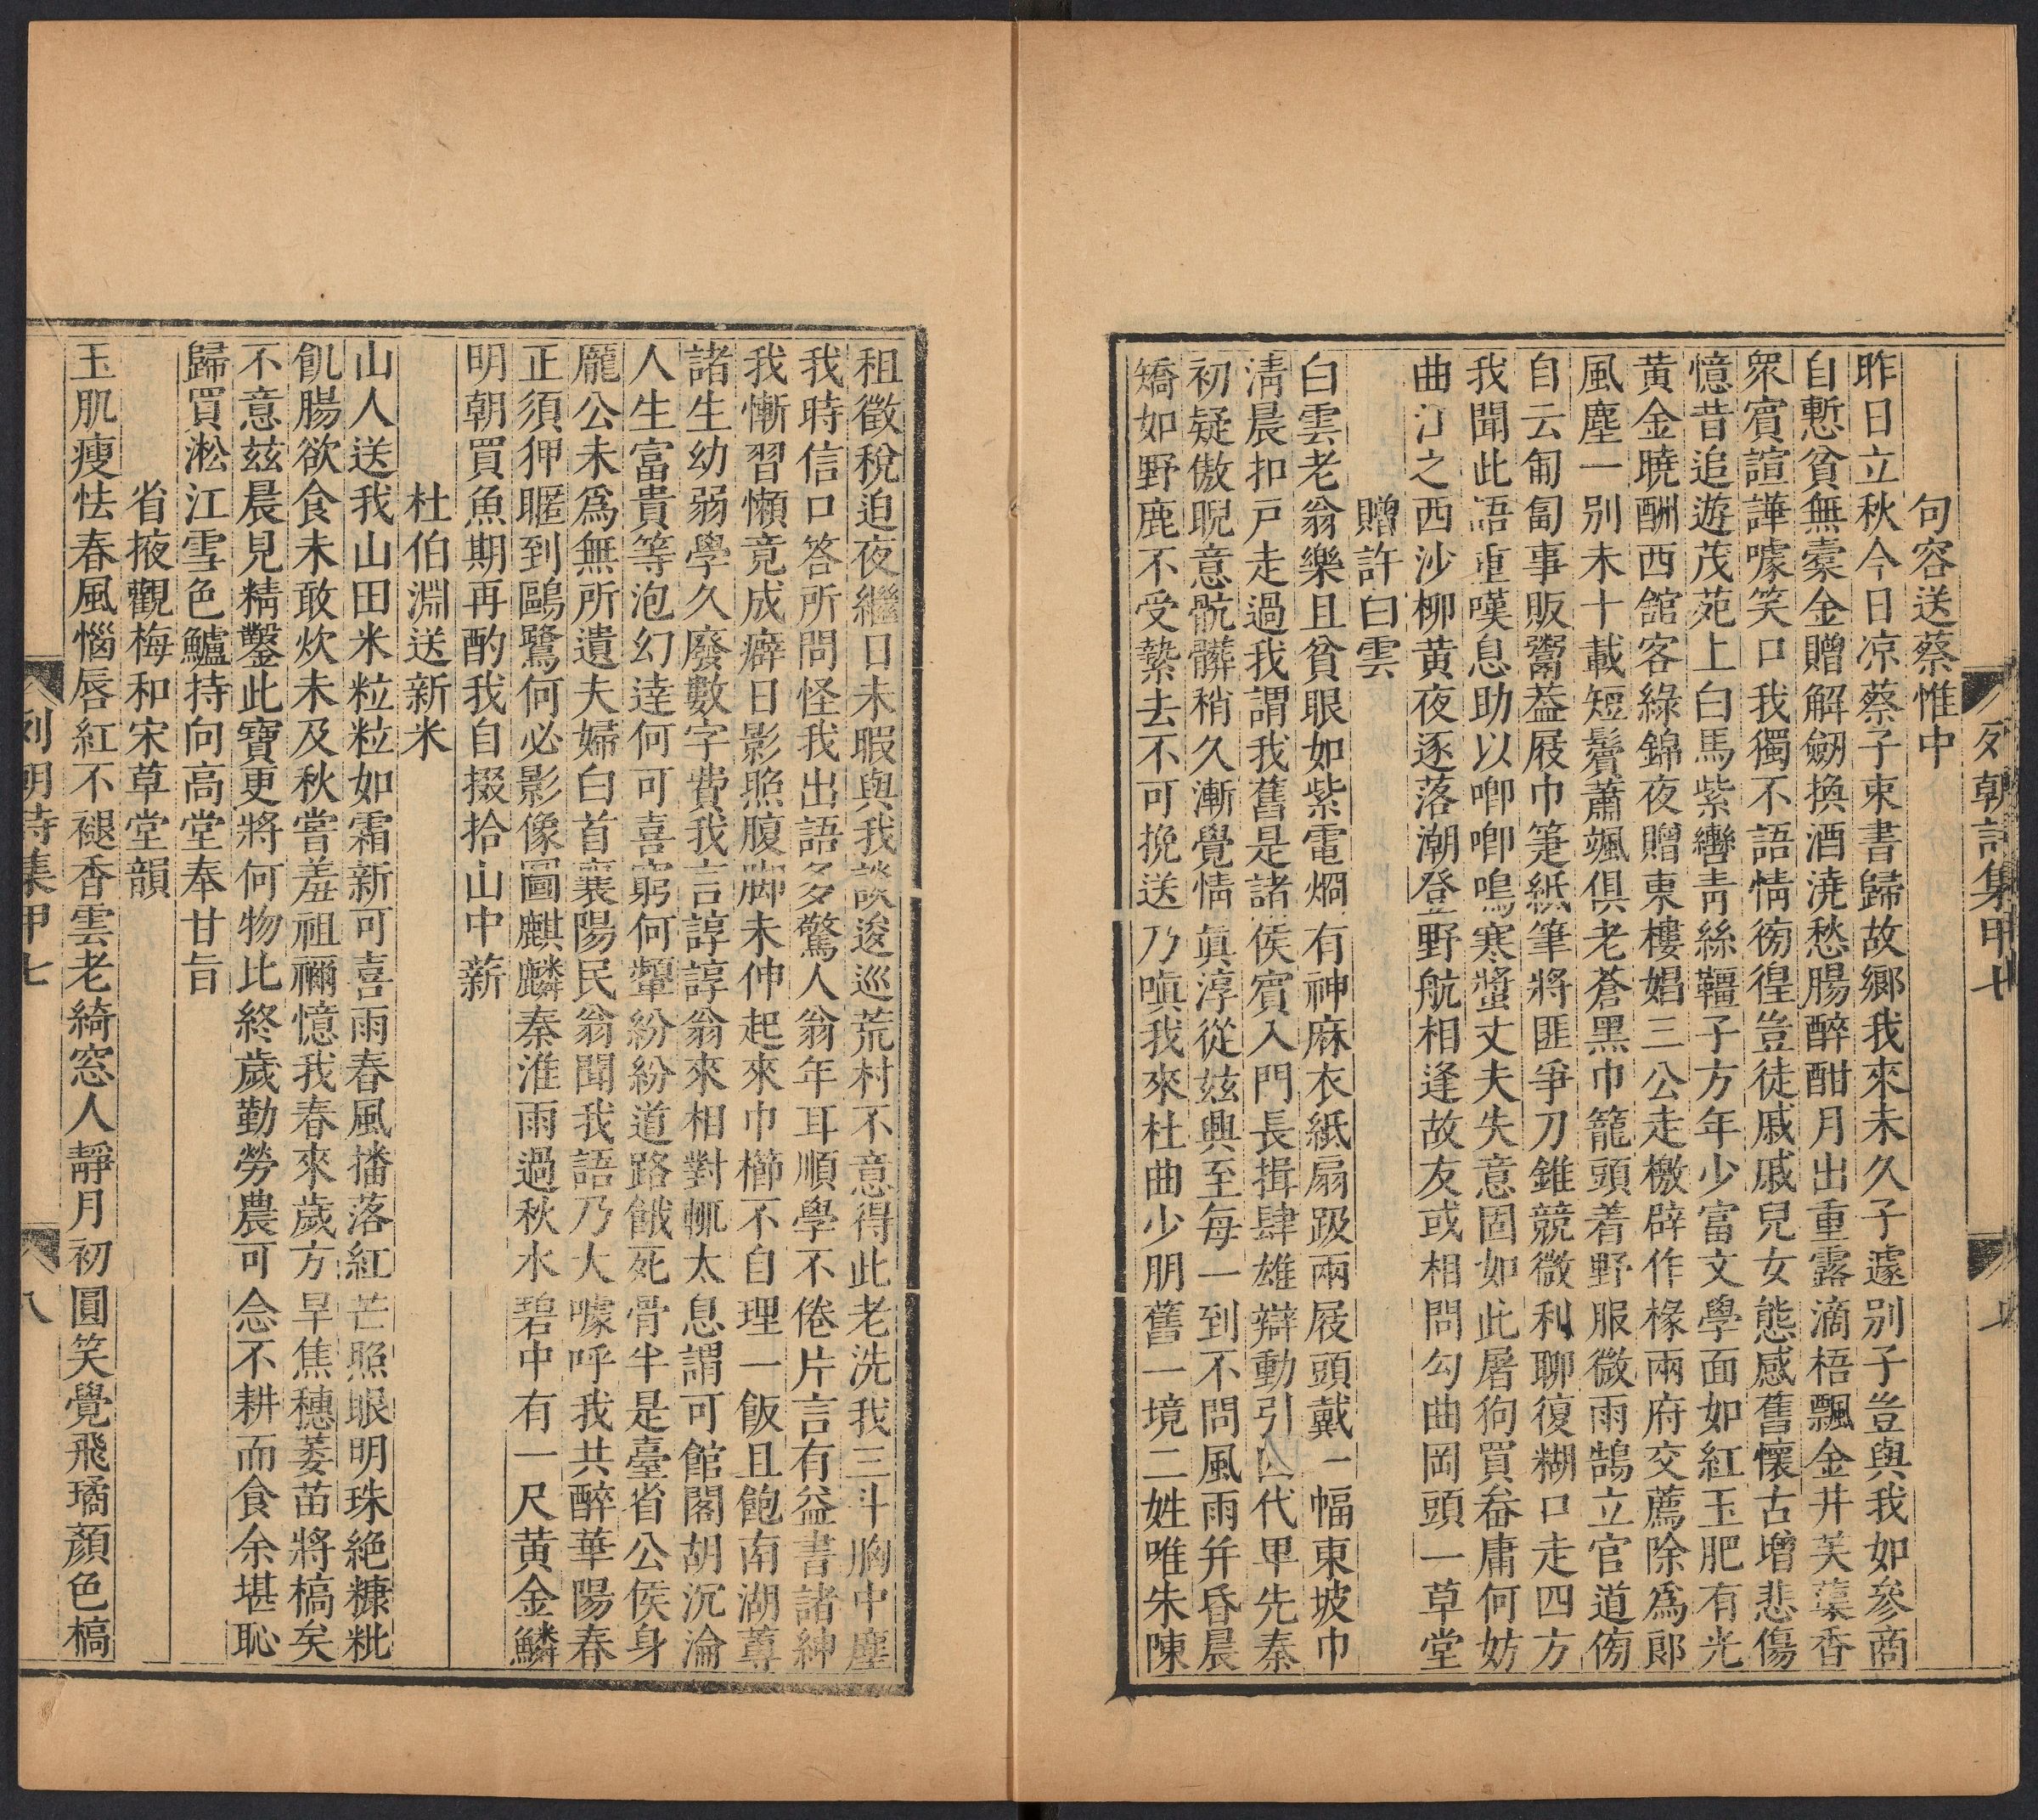 列朝詩集甲七
句容送蔡惟中
昨日立秋今日凉蔡子束書歸故鄉我來未久子遽别子豈與我如參商
自慙貧無槖金贈解劒換酒澆愁腸醉酣月出重露滴梧飄金井芙蕖香
衆賓諠譁噱笑口我獨不語情徬徨豈徒戚戚兒女態感舊懷古增悲傷
憶昔追遊茂苑上白馬紫轡靑絲韁子方年少富文學面如紅玉肥有光
黄金曉酬西舘客綠錦夜贈東樓娼三公走檄辟作椽兩府交薦除爲郞
風塵一别未十載短鬢蕭颯俱老蒼黑巾籠頭着野服微雨鵠立官道傍
自云匍匐事販鬻葢屐巾箑紙筆將匪爭刀錐競微利聊復糊口走四方
我聞此語重嘆息助以唧唧鳴寒螿丈夫失意固如此屠狗買畚庸何妨
曲汀之西沙柳黄夜逐落潮登野航相逢故友或相問勾曲岡頭一草堂
贈許白雲
白雲老翁樂且貧眼如紫電烱有神麻衣紙扇趿兩屐頭戴一幅東坡巾
淸晨扣戸走過我謂我舊是諸侯賓入門長揖肆雄辯動引代畢先秦
初疑傲睨意骯髒稍久漸覺情眞淳從兹興至每一到不問風雨幷昏晨
矯如野鹿不受縶去不可挽送乃嗔我來杜曲少朋舊一境二姓唯朱陳
租徵稅迫夜繼日未暇與我談逡巡荒村不意得此老洗我三斗胸中塵
我時信口答所問怪我出語多驚人翁年耳順學不倦片言有益書諸紳
我慚習懶竟成癖日影照腹脚未伸起來巾櫛不自理一飯且飽南湖蓴
諸生幼弱學久廢數字費我言諄諄翁來相對輒太息謂可館閣胡沉淪
人生富貴等泡幻逹何可喜窮何顰紛紛道路餓死骨半是臺省公侯身
龐公未爲無所遺夫婦白首襄陽民翁聞我語乃大噱呼我共醉華陽春
正須狎暱到鷗鷺何必影像圖麒麟秦淮雨過秋水碧中有一尺黄金鱗
明朝買魚期再酌我自掇拾山中薪
杜伯淵送新米
山人送我山田米粒粒如霜新可喜雨春風播落紅芒照眼明珠絶糠粃
飢腸欲食未敢炊未及秋嘗羞祖禰憶我春來歲方旱焦穗萎苗將槁矣
不意兹晨見精鑿此寶更將何物比終歲勤勞農可念不耕而食余堪恥
歸買淞江雪色鱸持向高堂奉甘旨
省掖觀梅和宋草堂韻
玉肌瘦怯春風惱唇紅不褪香雲老綺窓人靜月初圓笑覺飛璚顏色槁
列朝詩集甲七
八